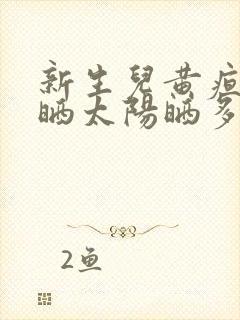 新生兒黃疸
晒太陽晒多
2鱼